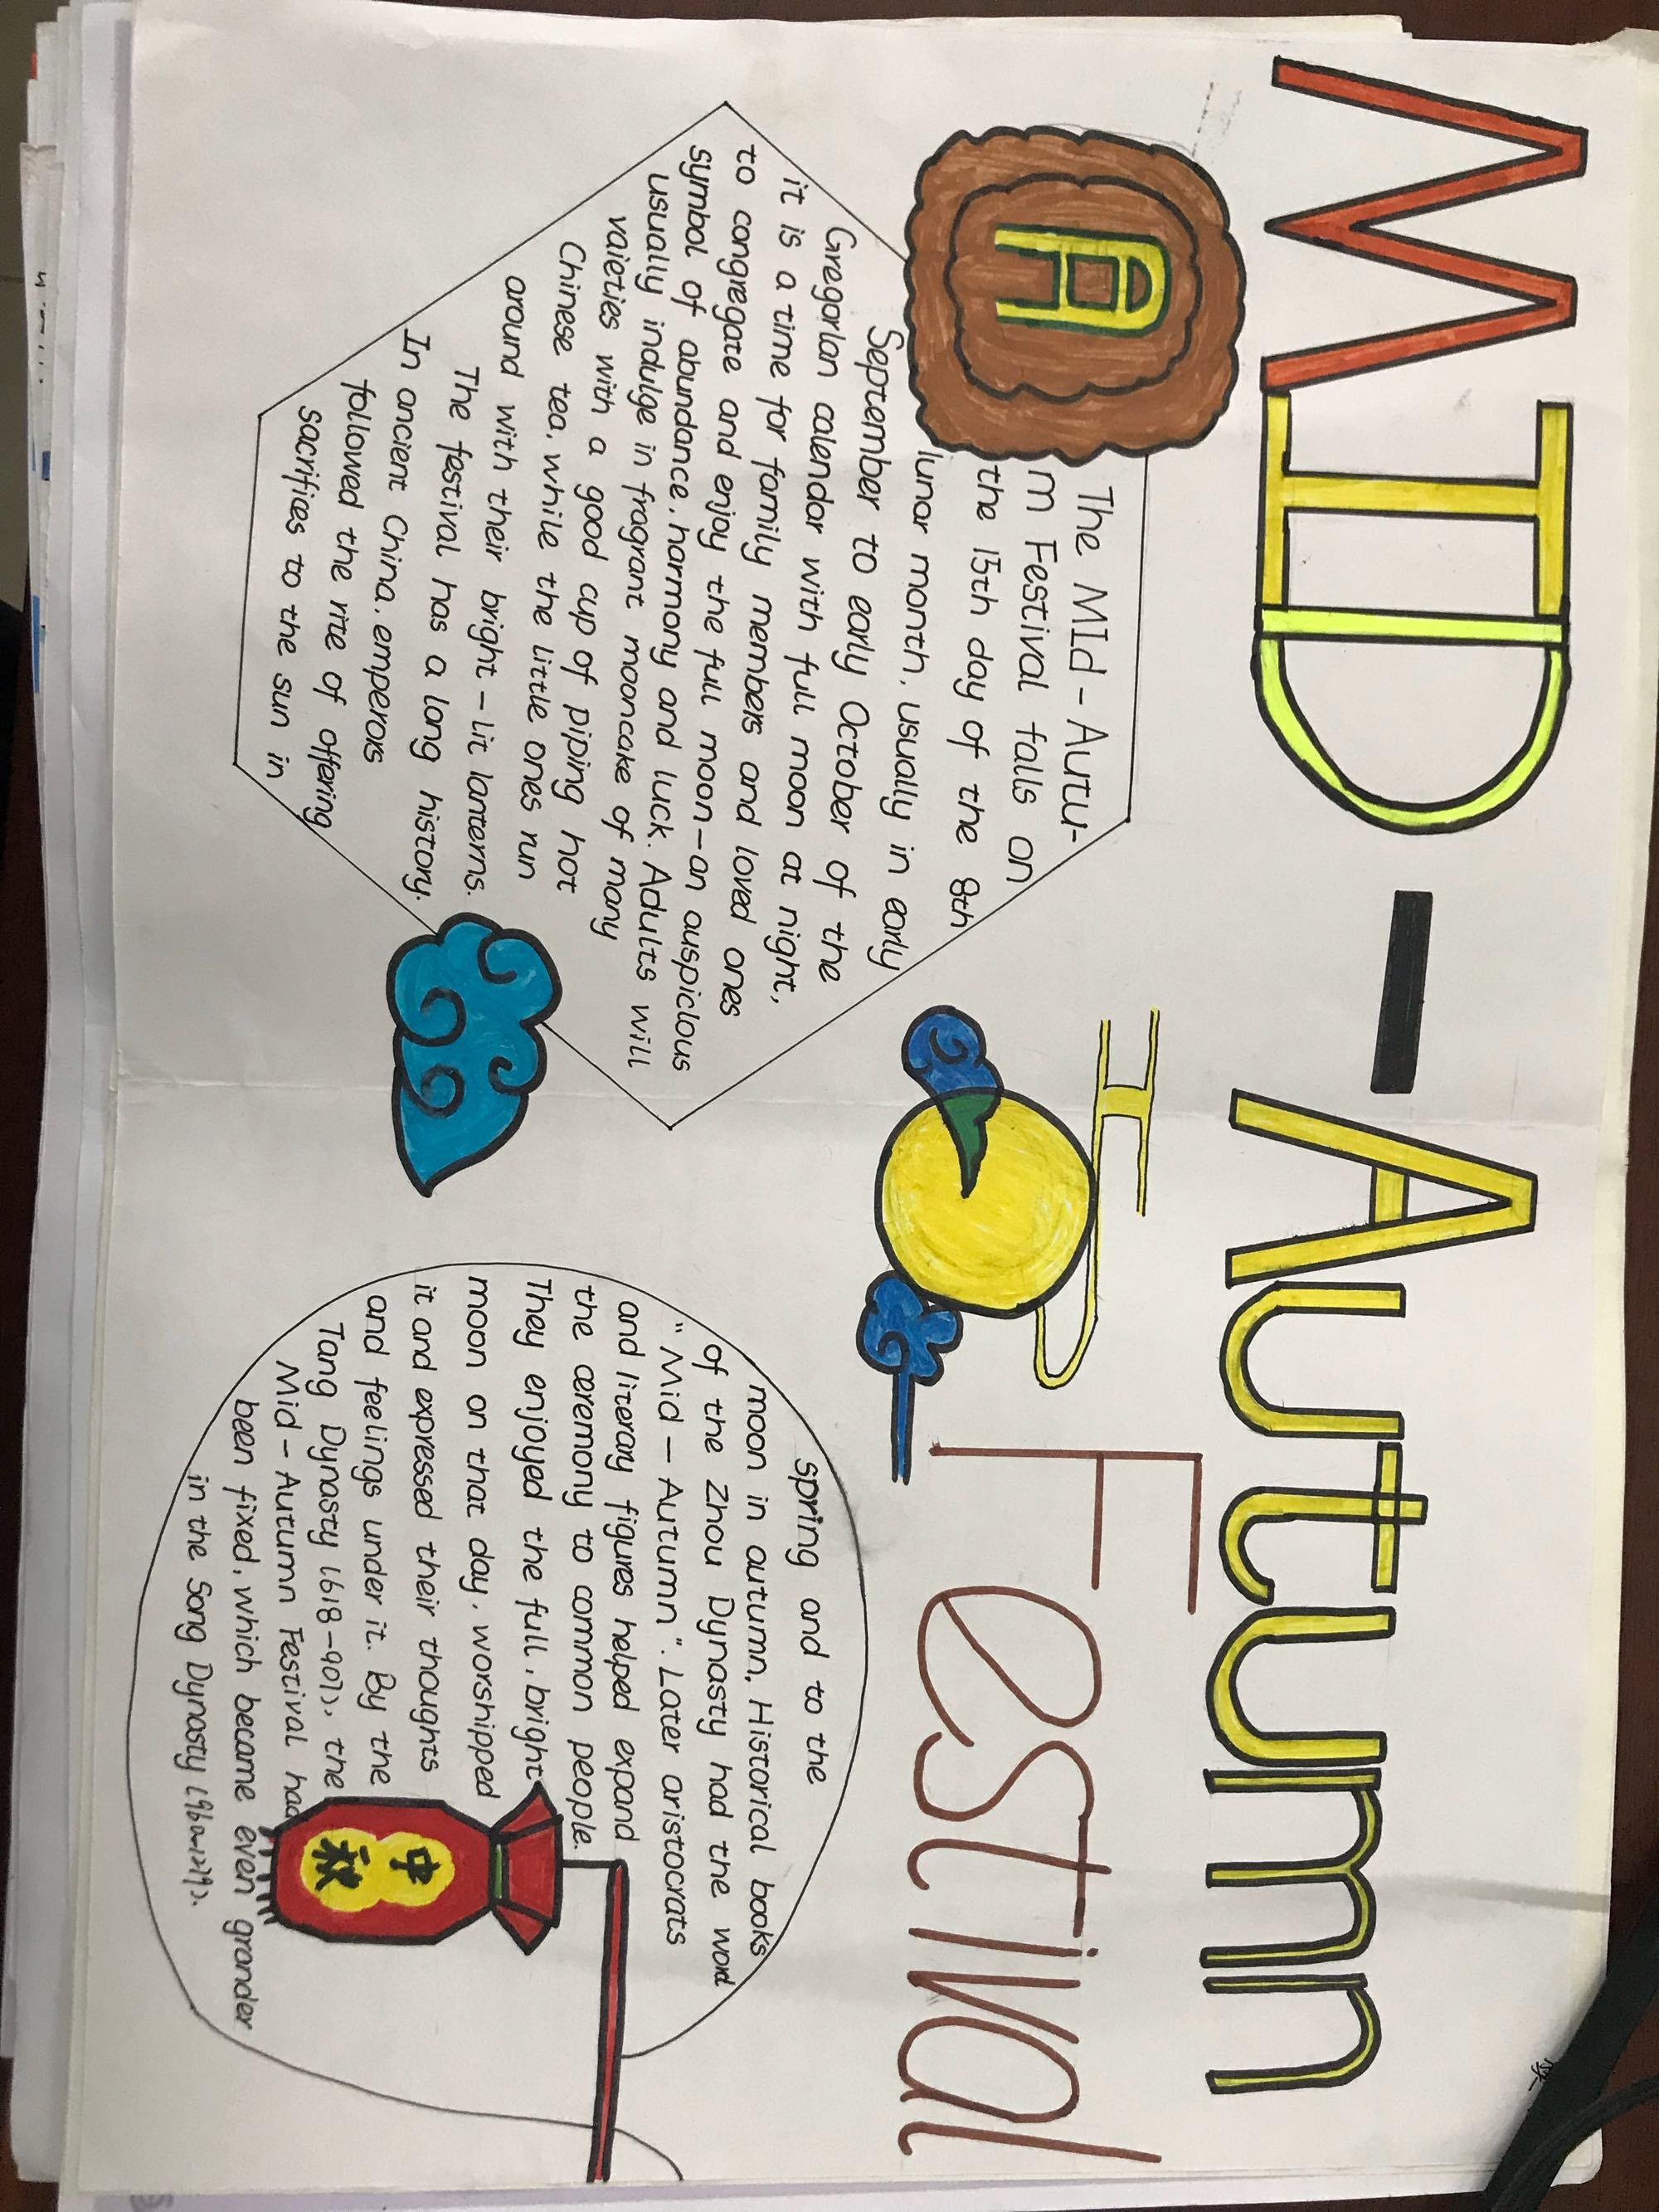 MID-Autumn
Festival
The MId-Autu-
m Festival falls on
the 15th day of the 8th
lunar month, usually in early
September to early October of the
Gregorlan calendar with full moon at night,
it is a time for family members and loved ones
to congregate and enjoy the full moon-an auspicious
symbol of abundance, harmony and luck. Adults will
usually indulge in fragrant mooncake of many
vaieties with a good cup of piping hot
Chinese tea, while the little ones run
around with their bright-lit lanterns.
The festival has a long history.
In ancient China, emperors
followed the rite of offering
sacrifices to the sun in
spring and to the
moon in autumn. Historical books
of the Zhou Dynasty had the word
"Mid-Autumn". Later aristocrats
and literary figures helped expand
the ceremony to common people.
They enjoyed the full, bright
moon on that day, worshipped
it and expressed their thoughts
and feelings under it. By the
Tang Dynasty (618-907), the
Mid-Autumn Festival had
been fixed, which became even grander
in the Song Dynasty (960-1279).
中
秋